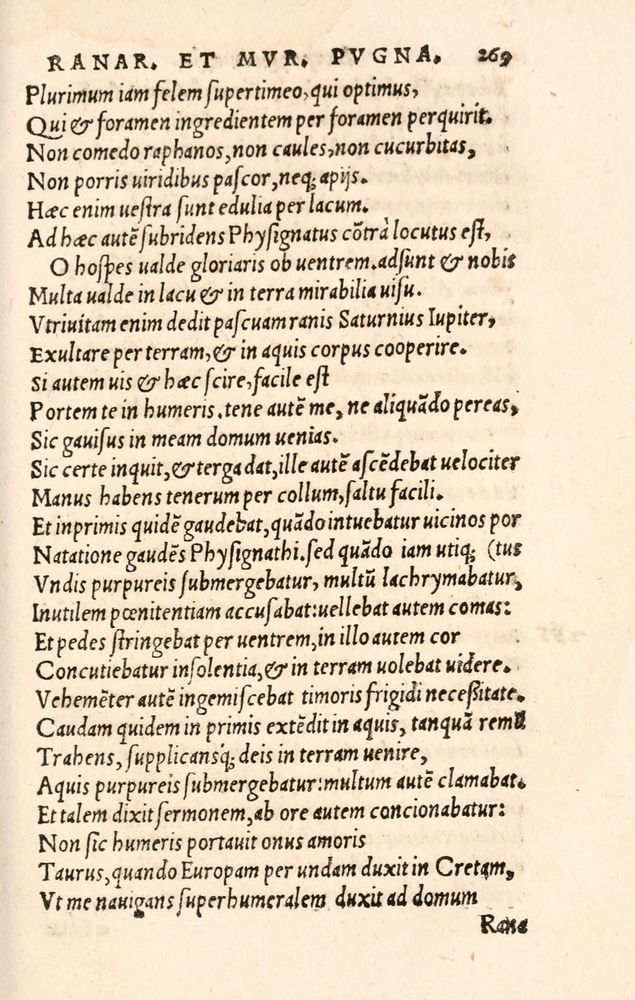 RANAR. ET MVR. PVGNA. 269
Plurimum iam felem ſupertimeo, qui optimus,
Qui & foramen ingredientem per foramen perquirit.
Non comedo raphanos, non caules, non cucurbitas,
Non porris uiridibus paſcor, neq; apijs.
Hæc enim ueſtra ſunt edulia per lacum.
Ad hæc autē ſubridens Phyſignatus cōtrà locutus eſt,
O hoſpes ualde gloriaris ob uentrem. adſunt & nobis
Multa ualde in lacu & in terra mirabilia uiſu.
Vtriuitam enim dedit paſcuam ranis Saturnius Iupiter,
Exultare per terram, & in aquis corpus cooperire.
Si autem uis & hæc ſcire, facile eſt
Portem te in humeris. tene autē me, ne aliquādo pereas,
Sic gauiſus in meam domum uenias.
Sic certe inquit, & terga dat, ille autē aſcēdebat uelociter
Manus habens tenerum per collum, ſaltu facili.
Et inprimis quidē gaudebat, quādo intuebatur uicinos por
Natatione gaudēs Phyſignathi. ſed quādo iam utiq; (tus
Vndis purpureis ſubmergebatur, multū lachrymabatur,
Inutilem pœnitentiam accuſabat: uellebat autem comas:
Et pedes ſtringebat per uentrem, in illo autem cor
Concutiebatur inſolentia, & in terram uolebat uidere.
Vehemēter autē ingemiſcebat timoris frigidi neceßitate.
Caudam quidem in primis extēdit in aquis, tanquā remū
Trahens, ſupplicanſq; deis in terram uenire,
Aquis purpureis ſubmergebatur: multum autē clamabat.
Et talem dixit ſermonem, ab ore autem concionabatur:
Non ſic humeris portauit onus amoris
Taurus, quando Europam per undam duxit in Cretam,
Vt me nauigans ſuperhumeralem duxit ad domum
Rana